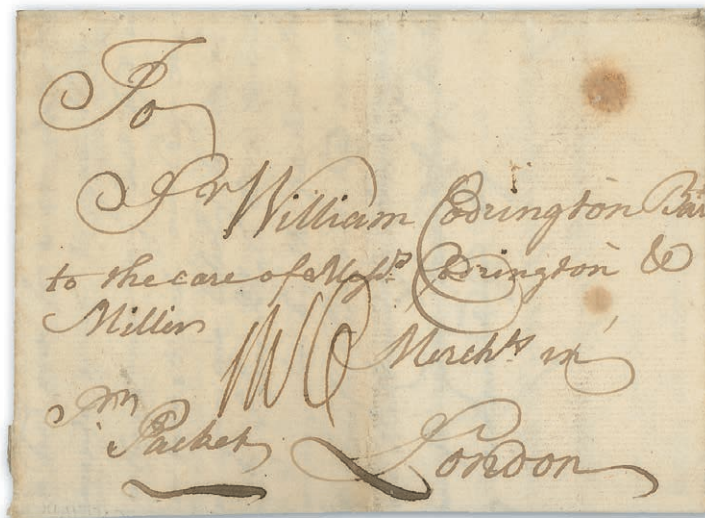 To
Sr William Codrington Bart
to the care of Messrs Codrington &
Miller
Merchts in
Packet London